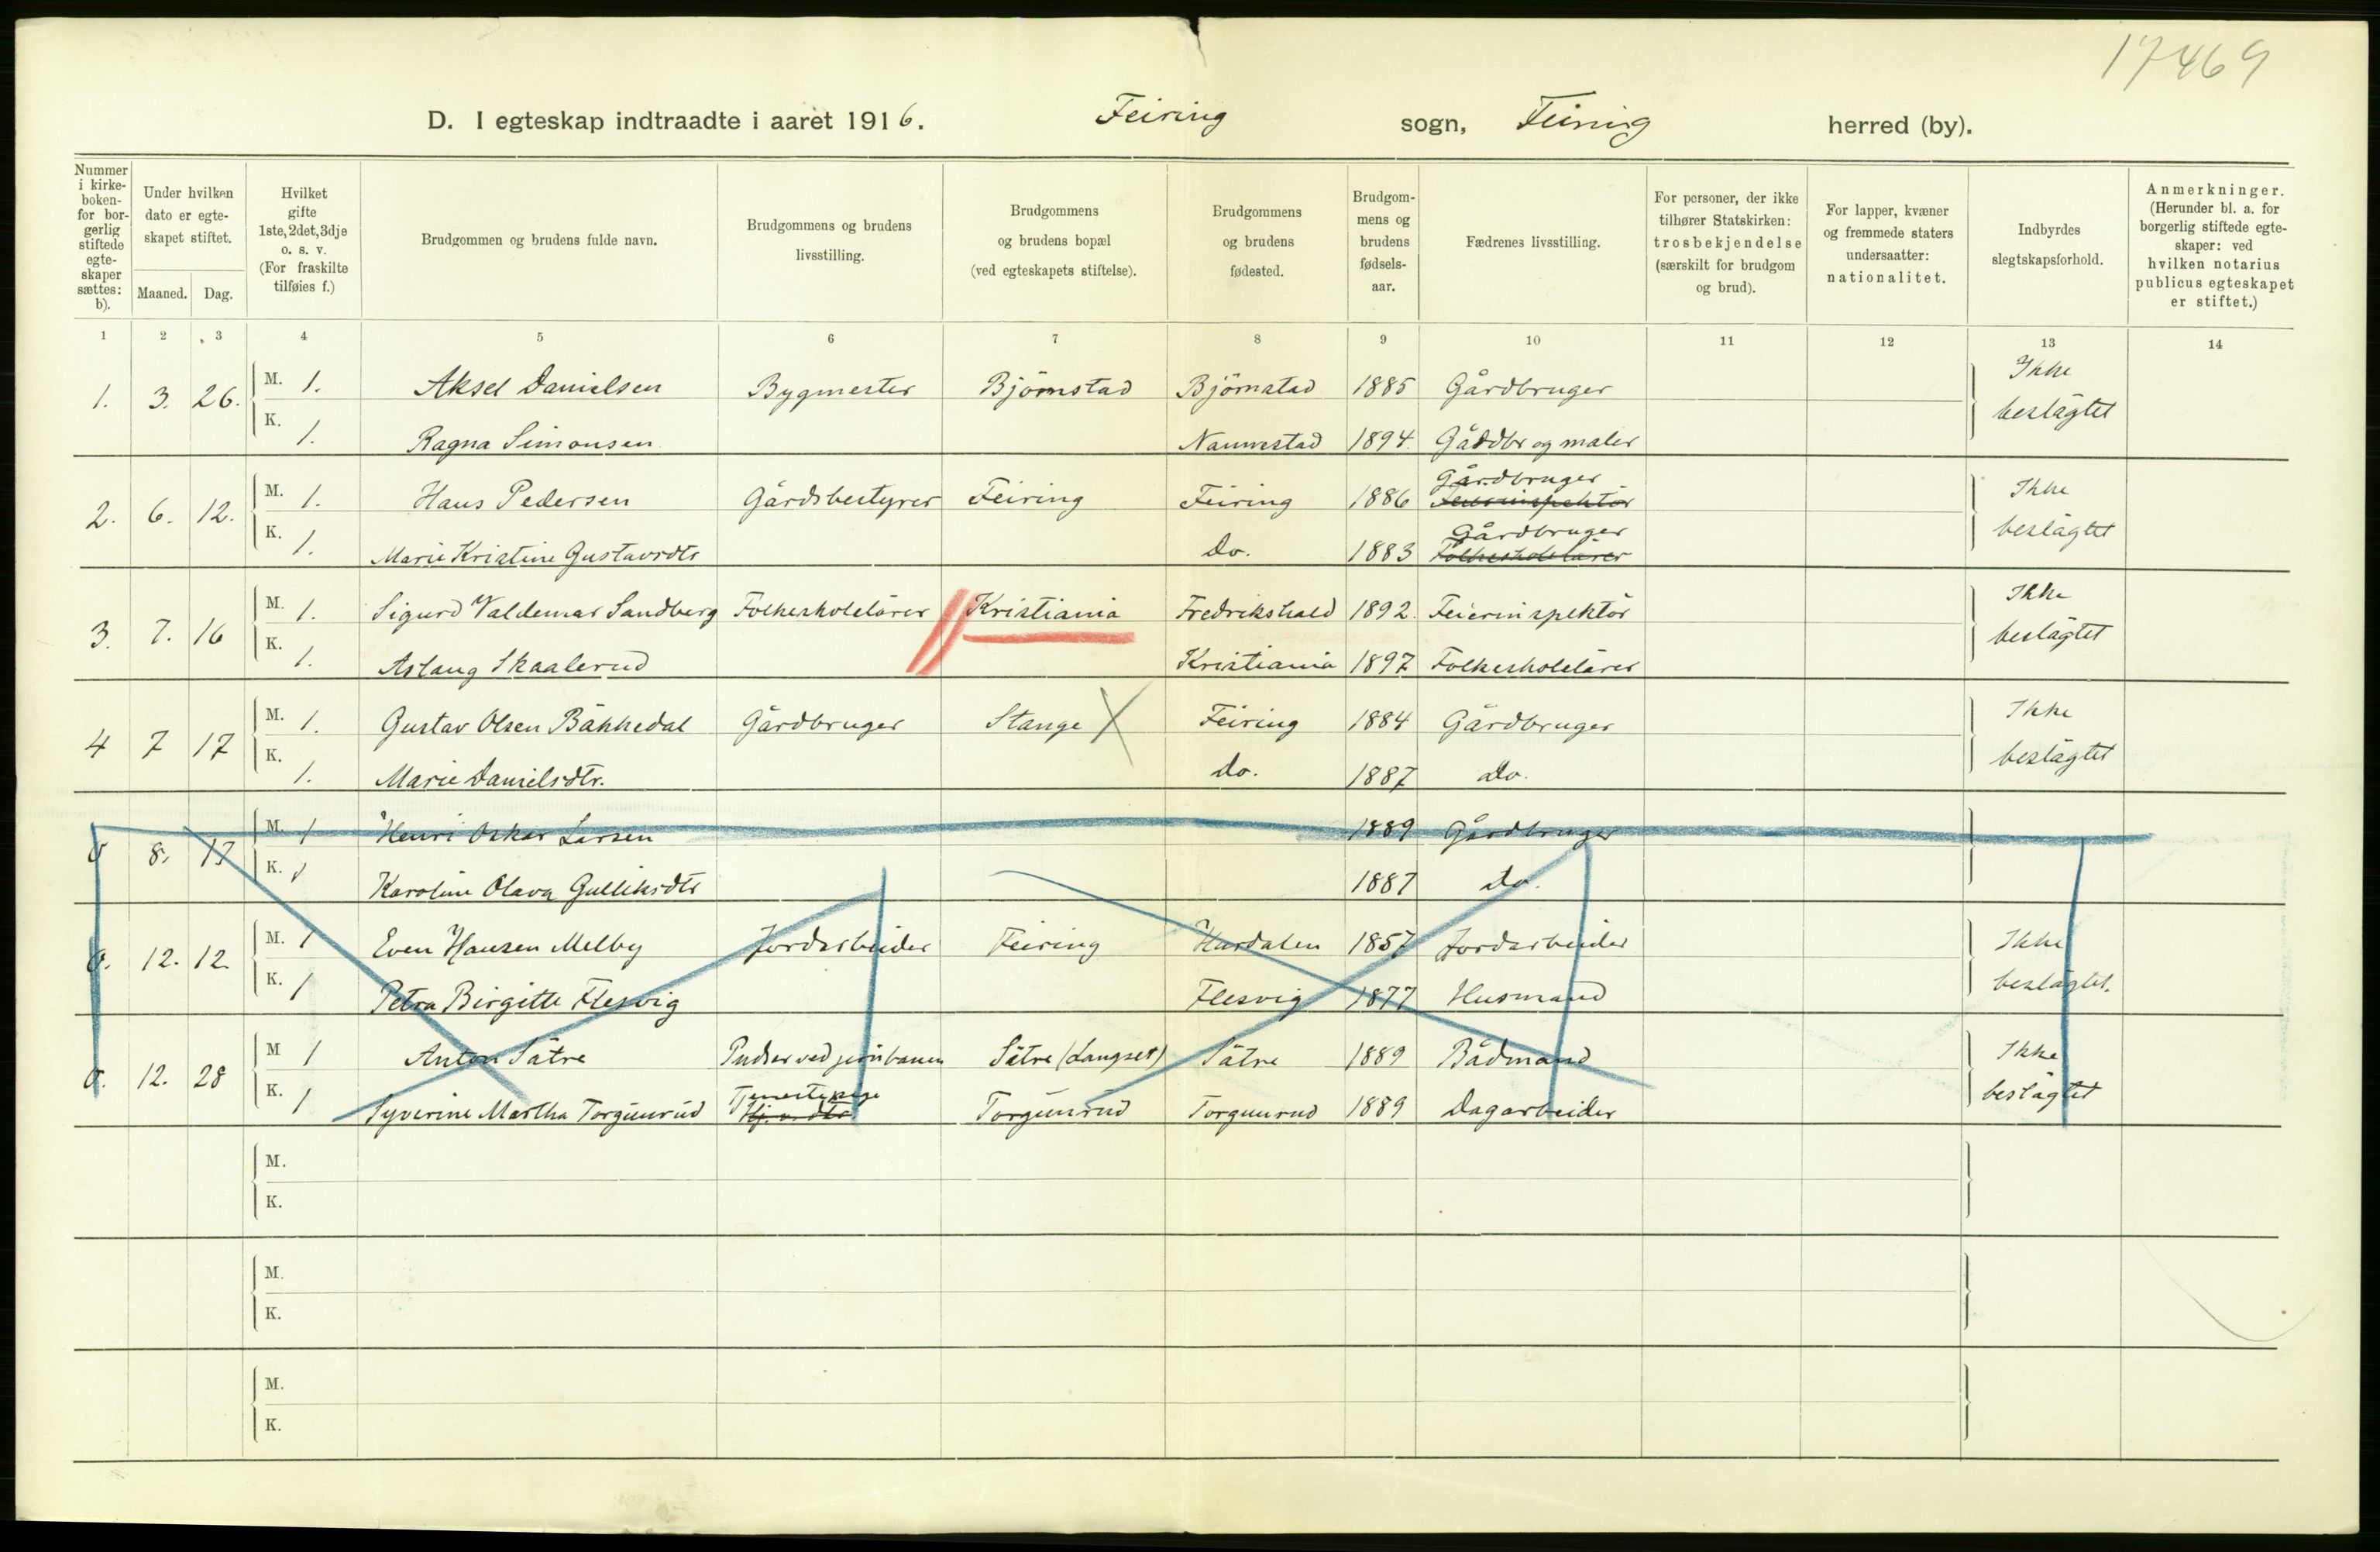 17469
D. I egteskap indtraadte i aaret 1916. Feiring sogn, Feiring herred (by).
Nummer i kirke-boken- for bor-gerlig stiftede egte-skaper sættes: b).
Under hvilken dato er egte-skapet stiftet.
Maaned. Dag.
Hvilket gifte 1ste, 2det, 3dje o. s. v. (For fraskilte tilføies f.)
Brudgommen og brudens fulde navn.
Brudgommens og brudens livsstilling.
Brudgommens og brudens bopæl (ved egteskapets stiftelse).
Brudgommens og brudens fødested.
Brudgom-mens og brudens fødsels-aar.
Fædrenes livsstilling.
For personer, der ikke tilhører Statskirken: trosbekjendelse (særskilt for brudgom og brud).
For lapper, kvæner og fremmede staters undersaatter: nationalitet.
Indbyrdes slegtskapsforhold.
Anmerkninger. (Herunder bl. a. for borgerlig stiftede egte-skaper: ved hvilken notarius publicus egteskapet er stiftet.)
1 2 3 4 5 6 7 8 9 10 11 12 13 14
1. 3. 26. M. 1. Aksel Danielsen Bygmester Björnstad Björnstad 1885 Gårdbruger Ikke
K. 1. Ragna Simonsen Nannestad 1894. Gåddbr og maler beslägtet
2. 6. 12. M. 1. Hans Pedersen Gårdsbestyrer Feiring Feiring 1886 Gårdbruger Feierinspektör Ikke
K. 1. Marie Kristine Gustavsdtr Do. 1883 Gårdbruger Folkeskolelärer beslägtet
3. 7. 16 M. 1. Sigurd Valdemar Sandberg Folkeskolelärer Kristiania Fredrikshald 1892. Feierinspektör Ikke
K. 1. Aslaug Skaalerud Kristiania 1897 Folkeskolelärer beslägtet
4 7 17 M. 1. Gustav Olsen Bäkkedal Gårdbruger Stange X Feiring 1884 Gårdbruger Ikke
K. 1. Marie Danielsdtr. Do. 1887 Do. beslägtet
0 8. 13 M. 1 Henri Oskar Larsen 1889 Gårdbruger
K. 1 Karoline Olava Gulliksdtr 1887 Do.
0. 12. 12. M. 1 Even Hansen Melby Jordarbeider Feiring Hurdalen 1857 Jordarbeider Ikke
K. 1 Petra Birgitte Flesvig Flesvig 1877 Husmand beslägtet.
0. 12. 28 M 1 Anton Sätre Pudser ved jernbanen Sätre (Langset) Sätre 1889 Bådmand Ikke
K. 1 Syverine Martha Torgunrud Tjenestepige Torgunrud Torgunrud 1889 Dagarbeider beslägtet
M.
K.
M.
K.
M.
K.